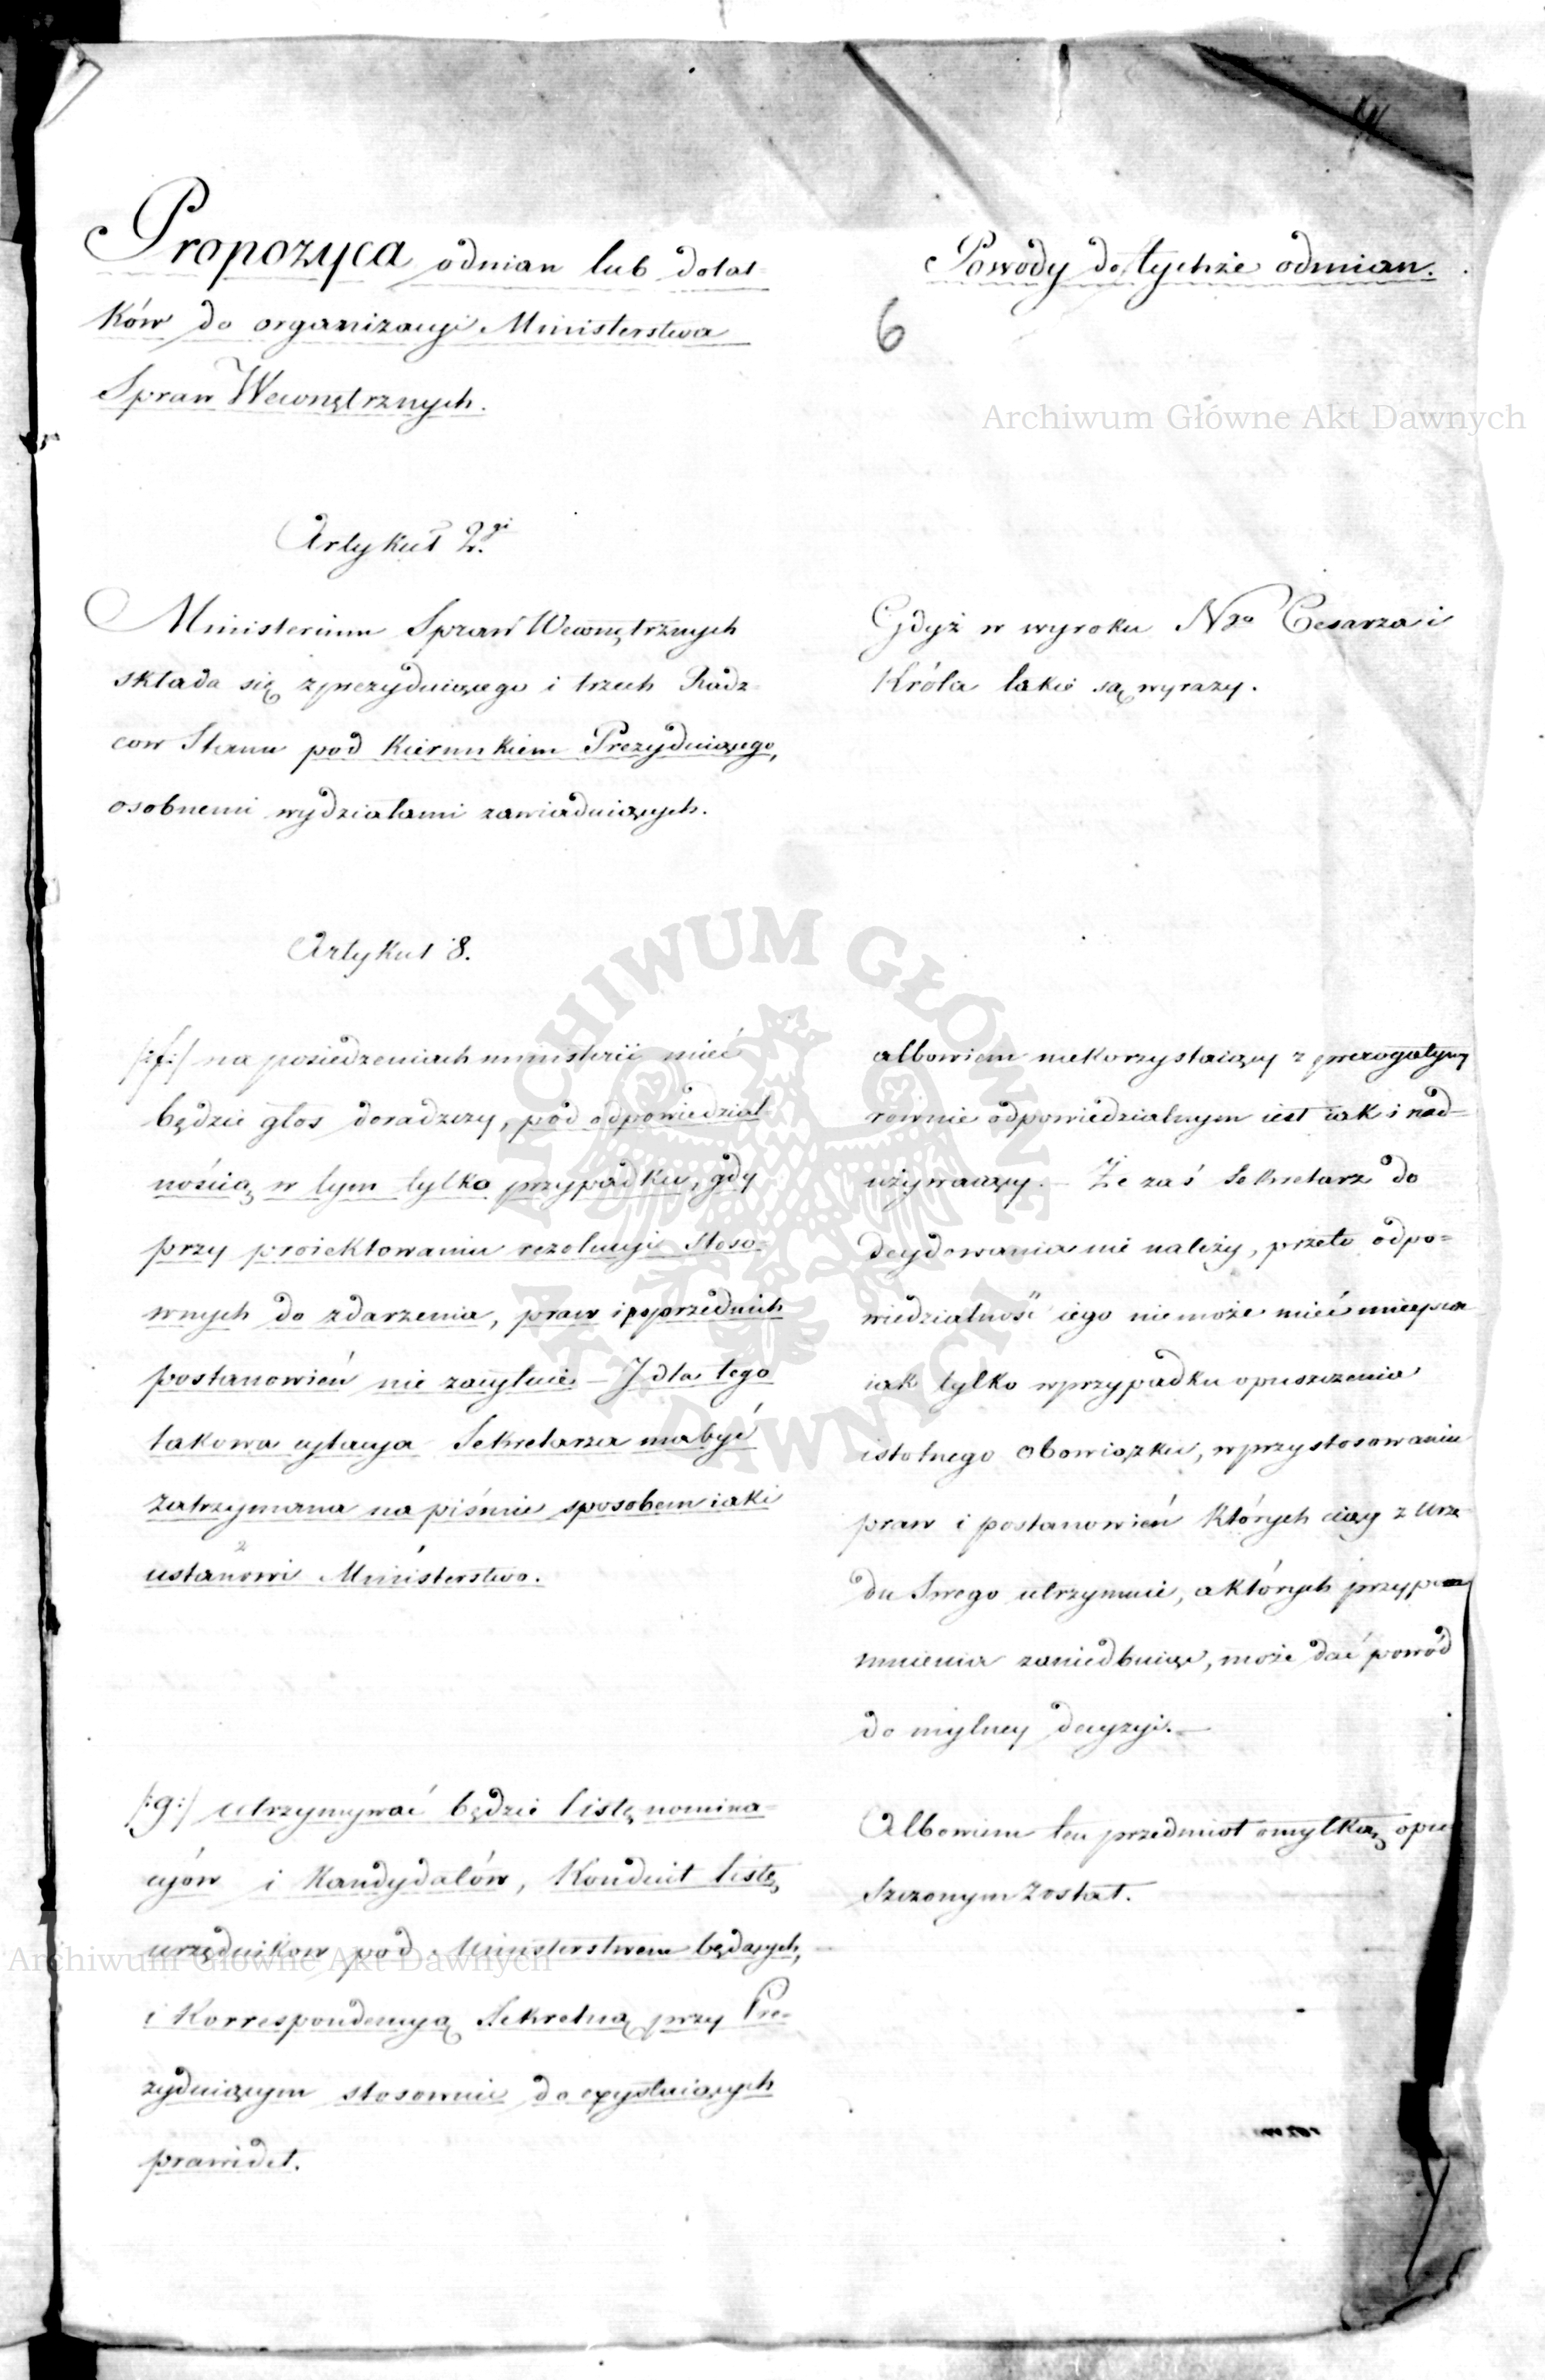 Propozyca odmian lub dotat=
ków do organizacyi Ministerstwa
Spraw Wewnętrznych.
Artykuł 2.gi
Ministerium Spraw Wewnętrznych
składa się z prezyduiącego i trzech Radz=
cow Stanu pod kierunkiem Prezyduiącego,
osobnemi wydziałami zawiaduiących.
Artykuł 8.
/:f:/ na posiedzeniach ministerii mieć
będzie głos doradzczy, pod odpowiedzial=
nością w tym tylko przypadku, gdy
przy proiektowaniu rezolucyi stoso=
wnych do zdarzenia, praw i poprzednich
postanowień nie zacytuie – I dla tego
takowa cytacya Sekretarza ma być
zatrzymana na piśmie sposobem iaki
ustanowi Ministerstwo.
/:g:/ utrzymywać będzie listę nomina=
cyów i Kandydatów, Konduit listę
urzędnikow pod Ministerstwem będących,
i Korrespondencyą Sekretną przy Pre=
zyduiącym stosownie do exystuiących
prawideł.
Powody do tychże odmian.
6
Archiwum Główne Akt Dawnych
Gdyż w wyroku Ngo Cesarza i
Króla takie są wyrazy.
albowiem niekorzystaiący z prerogatywy
rownie odpowiedzialnym iest iak i nad=
używaiący. – Że zaś Sekretarz do
decydowania nie należy, przeto odpo=
wiedzialność iego nie może mieć mieysca
iak tylko w przypadku opuszczenia
istotnego obowiązku, w przystosowaniu
praw i postanowień których ciąg z Urzę=
du Swego utrzymuie, a których przypo
mnienia zaniedbuiąc, może dać powód
do mylney decyzyi. –
Albowiem ten przedmiot omyłką opu
szczonym został.
Archiwum Główne Akt Dawnych
ARCHIWUM GŁÓWNE AKT DAWNYCH